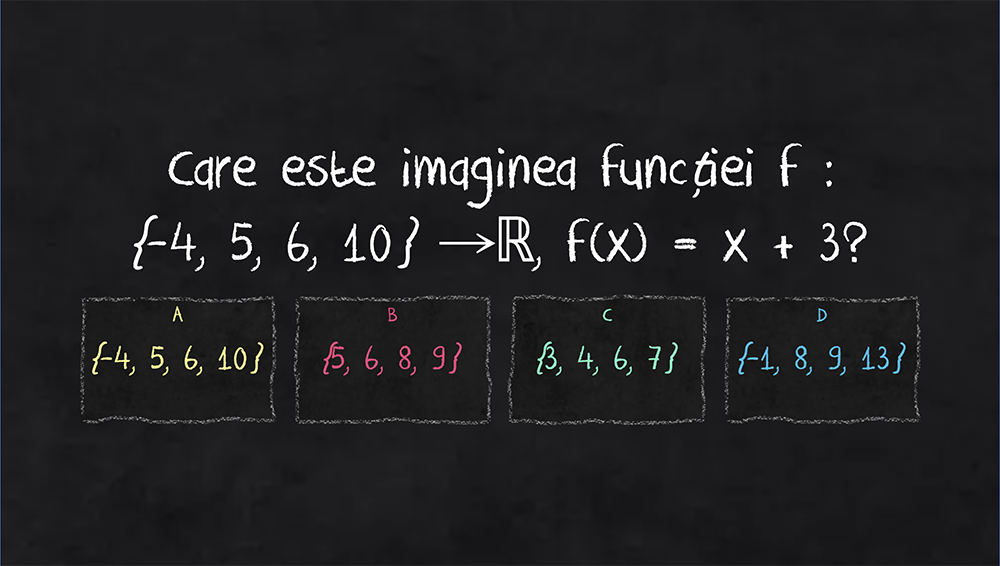 Care este imaginea funcției f :
{-4, 5, 6, 10} →ℝ, f(x) = x + 3?
A
{-4, 5, 6, 10}
B
{5, 6, 8, 9}
C
{3, 4, 6, 7}
D
{-1, 8, 9, 13}